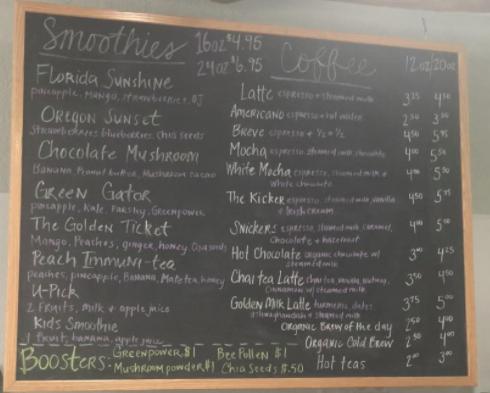 Smoothies 16oz $4.95
24oz $6.95
Florida Sunshine
pineapple, Mango, strawberries, OJ
Oregon Sunset
Strawberries blueberries, Chia Seeds
Chocolate Mushroom
Banana, Peanut butter, Mushroom cacao
Green Gator
pineapple, Kale, Parsley, Greenpower
The Golden Ticket
Mango, Peaches, ginger, honey, Chia seeds
Peach Immuni-tea
peaches, pineapple, Banana, Mate tea, honey
U-Pick
2 Fruits, milk + apple juice
Kids Smoothie
1 fruit, banana, apple juice
Boosters: Greenpower $1 Bee Pollen $1
Mushroom powder $1 Chia Seeds $.50
Coffee 12oz/20oz
Latte espresso + steamed milk 450
Americano espresso + hot water
Breve espresso + 1/2 + 1/2 450
Mocha espresso, steamed milk, chocolate 400
White Mocha espresso, steamed milk +
White chocolate
The Kicker espresso, steamed milk, vanilla 450
+ Irish cream
Snickers espresso, steamed milk, caramel,
Chocolate + hazelnut
Hot Chocolate organic chocolate w/ 300 425
steamed milk
Chai tea Latte chai tea, vanilla, nutmeg, 350 450
Cinnamon w/ steamed milk
Golden Milk Latte turmeric, dates, 375 500
ashwaghandah + steamed milk
Organic Brew of the day 250 400
Organic Cold Brew 400
Hot teas 200 300